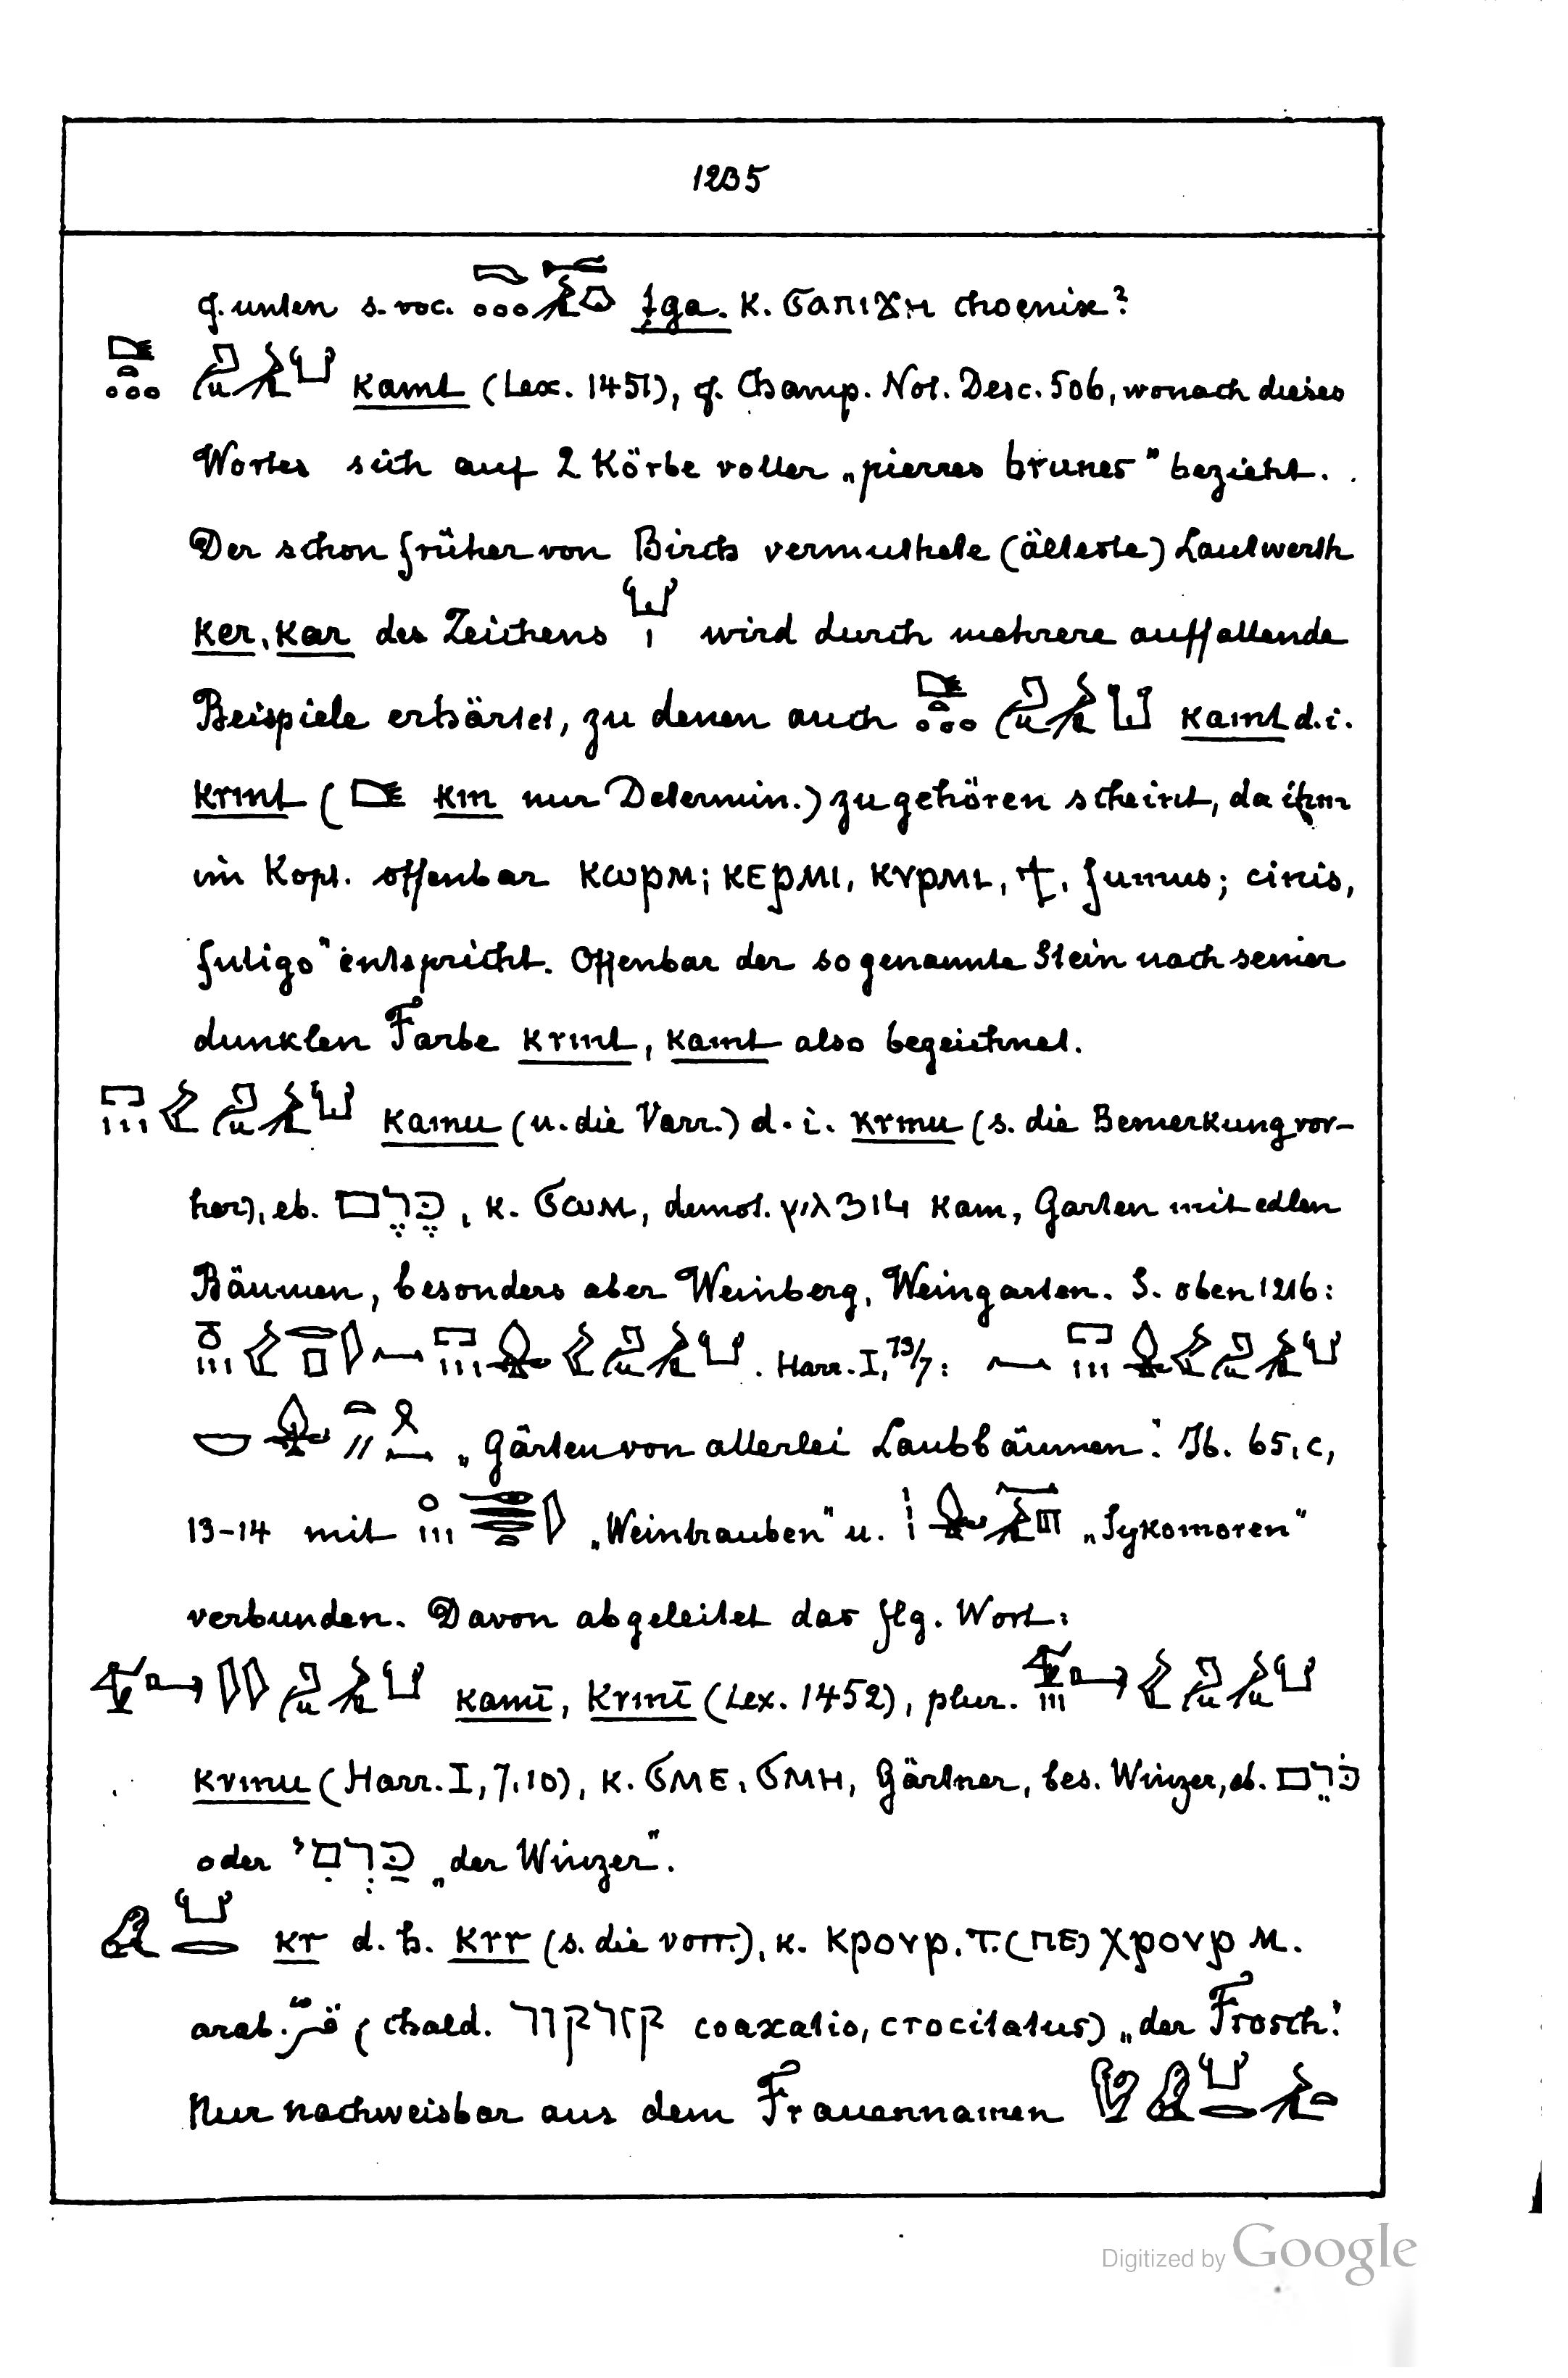 1235
cf. unten s. voc. ṱga. K. ϭⲁⲡⲓϫⲏ choenix?
kamt (Lex. 1451), cf. Champ. Not. Desc. 506, wonach dieses
Wortes sich auf 2 Körbe voller „pierres brunes" bezieht.
Der schon früher von Birch vermuthete (älteste) Lautwerth
ker, kar des Zeichens wird durch mehrere auffallende
Beispiele erhärtet, zu denen auch kamt d.i.
krmt ( km nur Determin.) zu gehören scheint, da ihm
im Kopt. offenbar ⲕⲱⲣⲙ; ⲕⲉⲣⲙⲓ, ⲕⲩⲣⲙⲓ, ϯ, fumus; cinis,
fuligo" entspricht. Offenbar der so genannte Stein nach seiner
dunklen Farbe krmt, kamt also bezeichnet.
kamu (u. die Varr.) d. i. krmu (s. die Bemerkung vor-
her), eb. כֶּרֶם, K. ϭⲱⲙ, demot. kam, Garten mit edlen
Bäumen, besonders aber Weinberg, Weingarten. S. oben 1216:
. Harr. I, 73/7:
„Gärten von allerlei Laubbäumen". Ib. 65, c,
13-14 mit „Weintrauben" u. „Sykomoren"
verbunden. Davon abgeleitet das flg. Wort:
kamī, krmī (Lex. 1452), plur.
krmu (Harr. I, 7, 10), K. ϭⲙⲉ, ϭⲙⲏ, Gärtner, bes. Winzer, eb. כֹּרֵם
oder כַּרְמִי „der Winzer".
kr d. h. krr (s. die vorr.), K. ⲕⲣⲟⲩⲣ, T. (ⲡⲉ) ⲭⲣⲟⲩⲣ M.
arab. قرّ (chald. קורקור coaxatio, crocitatus) „der Frosch".
Nur nachweisbar aus dem Frauennamen
Digitized by Google